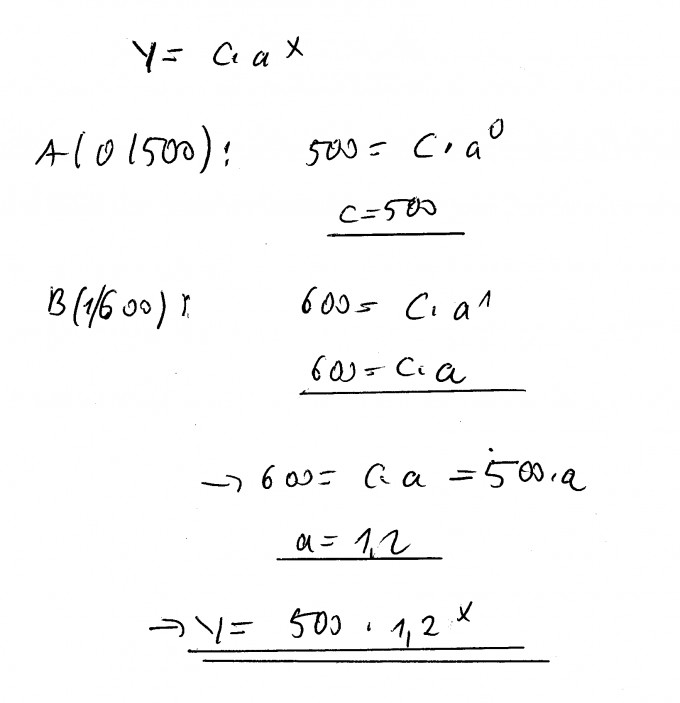 y = c · a^x
A(0/500): 500 = c · a^0
c = 500
B(1/600): 600 = c · a^1
600 = c · a
→ 600 = c · a = 500 · a
a = 1,2
→ y = 500 · 1,2^x